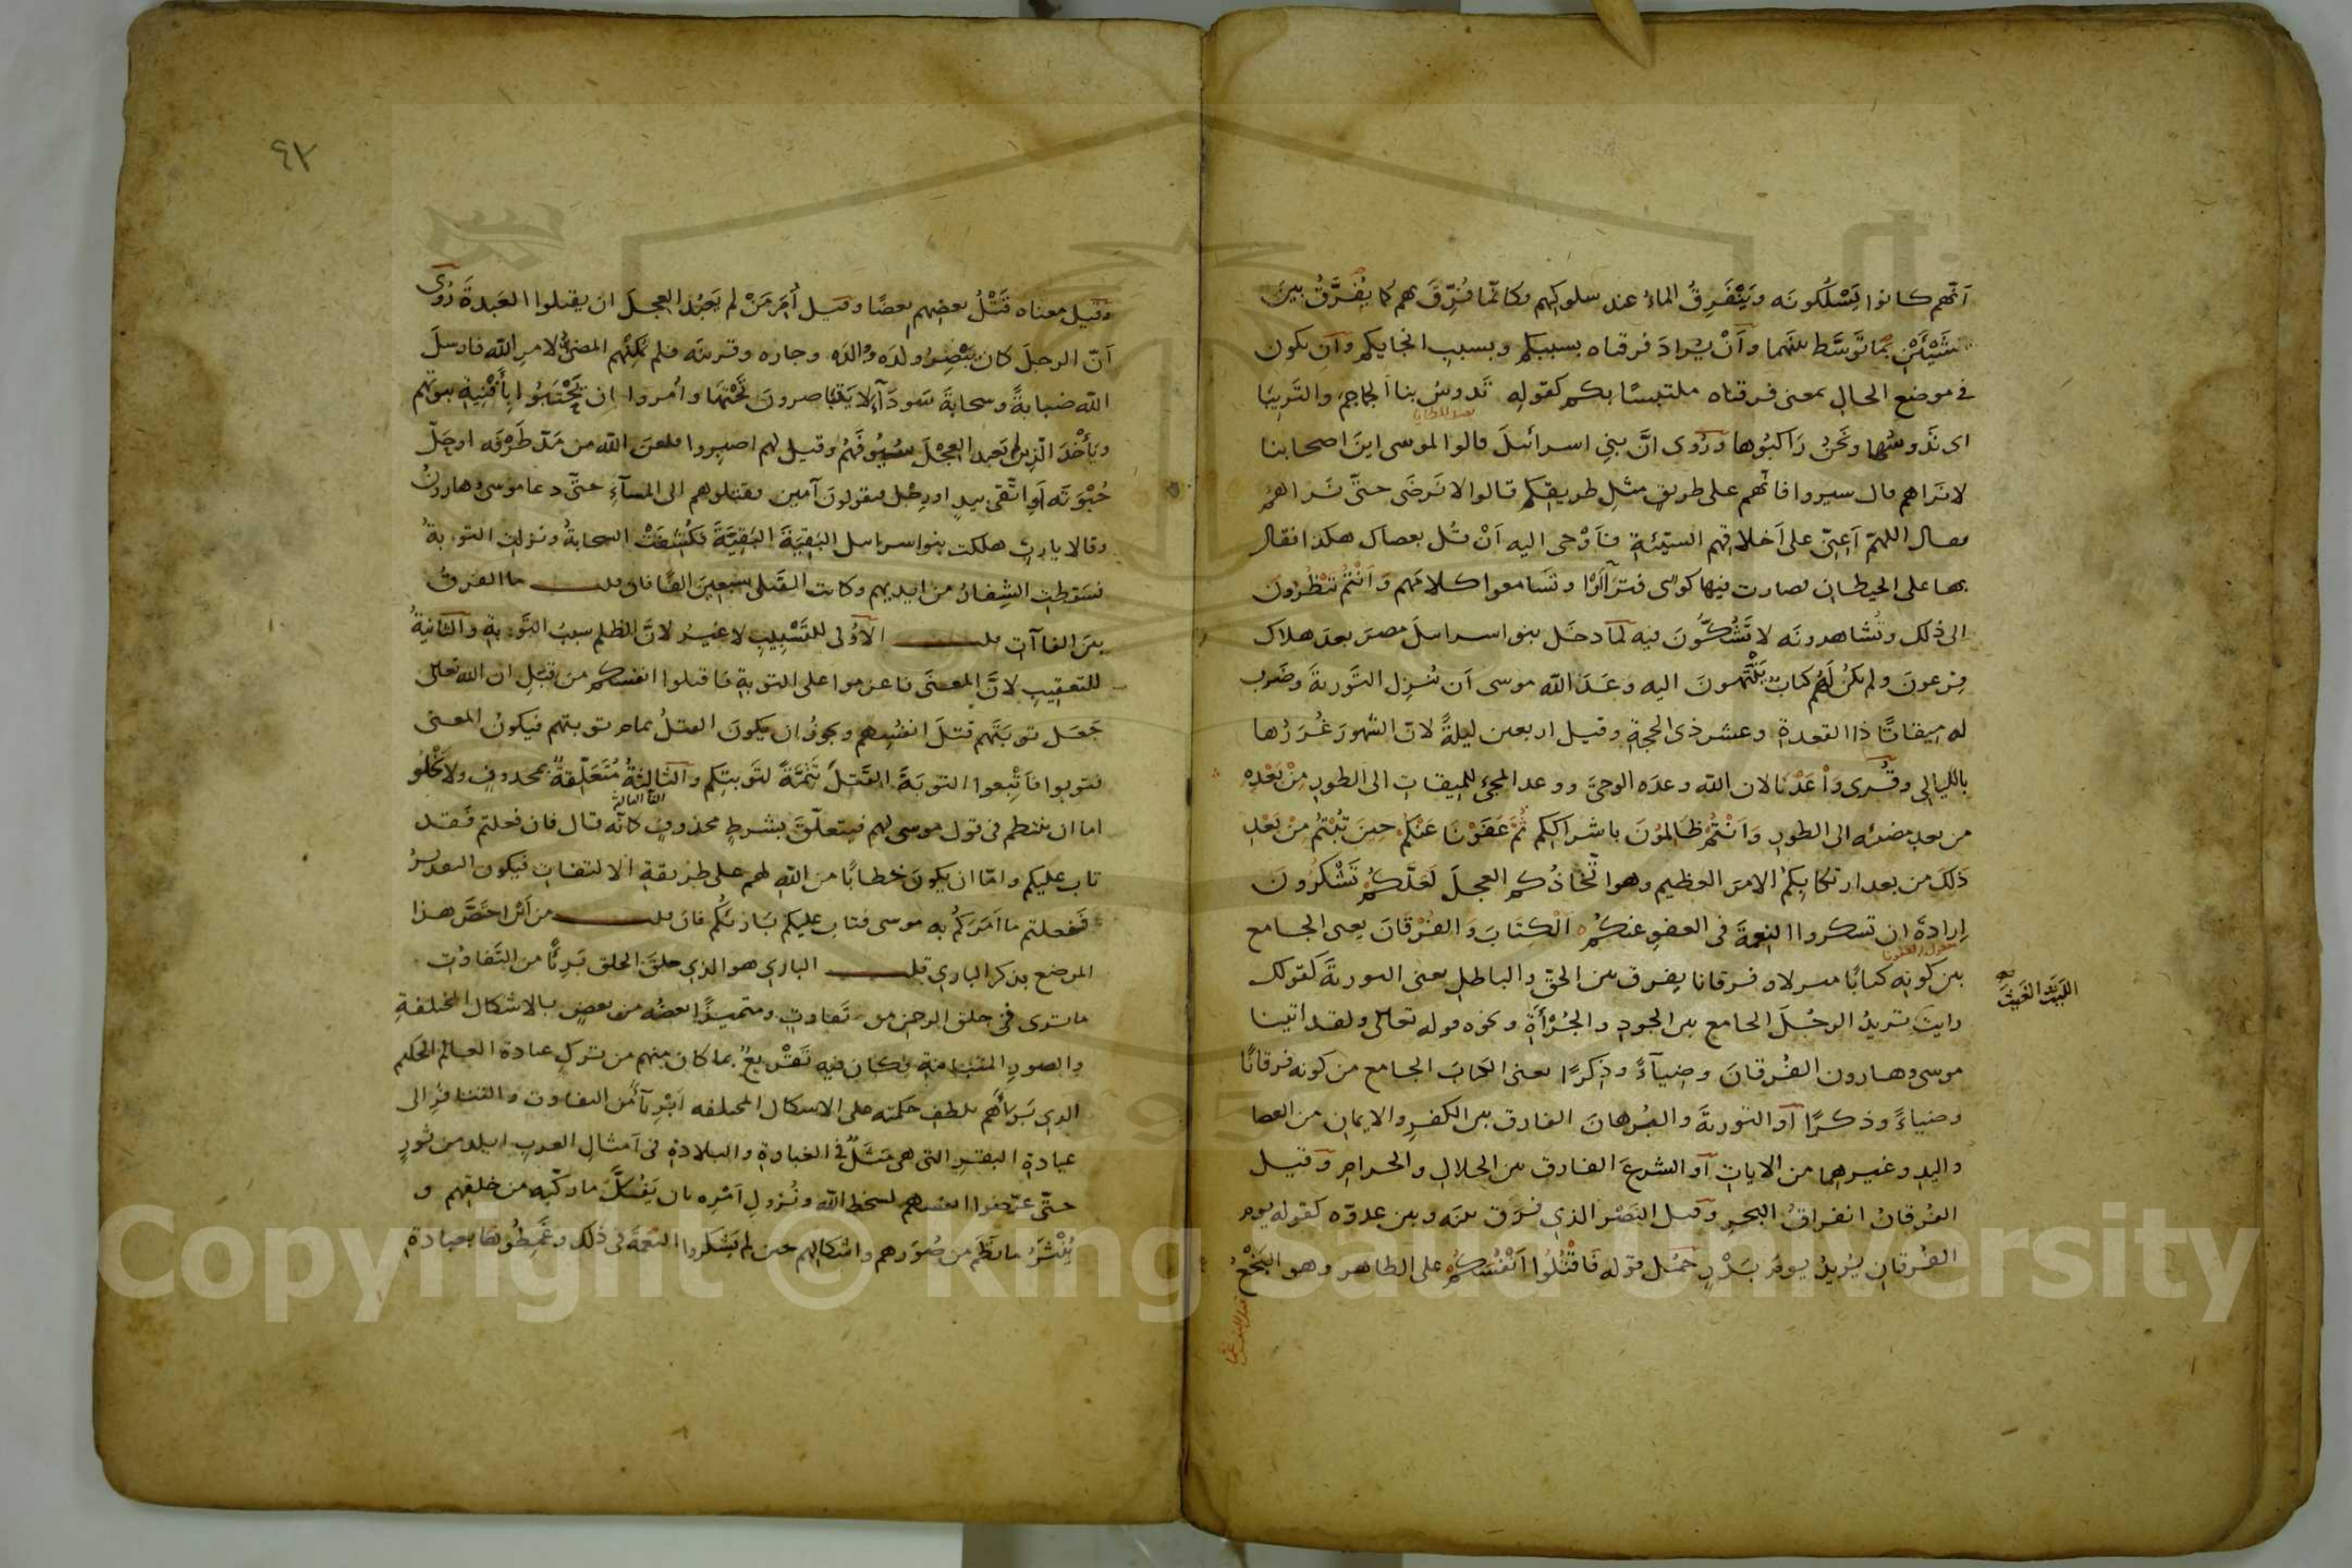 أنّهم كانوا يَسْلُكُونَه ويَتَفَرّقُ الماءُ عند سلوكهم فكانّما فُرِّقَ بهم كما يُفَرَّقُ بينَ
شَيْئَيْنِ بما تَوَسَّط بينهما وأنْ يُرادَ فرقناه بسببكم وبسببِ انجايكم وأن يكون
في موضع الحال بمعنى فرقناه ملتبسًا بكم كقوله تَدوسُ بنا الجماجمَ والتَّريبَا
اى تَدُوسُها ونَحْنُ رَاكبُوها ورُوى انَّ بني اسرائيلَ قالوا لموسى اينَ اصحابنا
لا نَراهم قال سيروا فانّهم على طريقٍ مثلِ طريقكم قالوا لا نَرضَى حتّى نَراهُمْ
فقال اللهمّ أَعِنِّي على أخلاقهم السيّئةِ فأَوْحى اليه أنْ قُل بعصاك هكذا فقال
بها على الحيطان فصارت فيها كوًى فتَرَاآوْا وتَسَامعوا كلامَهم وَأَنْتُمْ تَنْظُرُونَ
الى ذلك وتُشَاهدونَه لا تَشُكُّونَ فيه لمّا دخَل بنو اسرايلَ مصرَ بعدَ هلاك
فرعونَ ولم يكنْ لَهُم كتابٌ يَنْتَهونَ اليه وعَدَ الله موسى أن يُنْزِل التَّوريةَ وضَرب
له ميقاتًا ذا القعدةِ وعشر ذى الحجةِ وقيل اربعين ليلةً لانّ الشهورَ غُرَرُها
بالليالى وقُرى وَاعَدْنَا لان الله وعدَه الوحىَ ووعد المجىءَ للميقاتِ الى الطورِ مِنْ بَعْدِهِ
من بعدِ مضيّه الى الطورِ وَأَنْتُمْ ظَالِمُونَ باشراككم ثُمَّ عَفَوْنَا عَنْكُمْ حِينَ تُبْتُمْ مِنْ بَعْدِ
ذَلِكَ من بعد ارتكابِكُمُ الامرَ العظيم وهو اتّخاذُكم العجلَ لَعَلَّكُمْ تَشْكُرُونَ
إرادةَ ان تشكروا النعمةَ فى العفوِ عنكم الْكِتَابَ وَالْفُرْقَانَ يعنى الجامع
بين كونِه كتابًا منزلا وفرقانا يفرق بين الحقِّ والباطل يعنى التوريةَ كقولك
الغيثَ والليثَ
رايتَ تريدُ الرجُلَ الجامع بين الجودِ والجُرْأَةِ ونحوه قوله تعالى ولقد اتينا
موسى وهارون الفُرقانَ وضِيَآءً وذِكرًا يعنى الكتابَ الجامع من كونه فرقانًا
وضياءً وذكرًا أو التوريةَ والبُرهانَ الفارق بين الكفرِ والايمانِ من العصا
واليدِ وغيرهما من الاياتِ أو الشرعَ الفارق بين الحلالِ والحرامِ وقيل
الفُرقانُ انفراقُ البحرِ وقيل النَصْر الذى فرق بينَه وبين عدوّه كقوله يوم
الفُرقانِ يُريدُ يومَ بَدْرٍ حُمِل قوله فَاقْتُلُوا أَنْفُسَكُمْ على الظاهر وهو البَخْعُ
قتل النفس غمّا
٩٢
وقيل معناه قَتْلُ بعضِهم بعضًا وقيل أُمِرَ مَنْ لم يَعْبُدِ العجلَ ان يقتلوا العَبَدةَ رُوى
أنّ الرجلَ كان يُبْصِرُ ولدَه ووالدَه وجاره وقريبَه فلم يمكنهم المضىُّ لامرِ الله فارسلَ
الله ضبابةً وسحابةً سَودَآءَ لا يَتَباصرونَ تَحْتَهَا وأُمروا ان يَحْتَبُوا بأَفْنِيةِ بيوتهم
ويَأْخُذَ الّذين لم يَعبدوا العِجْلَ سُيُوفَهُمْ وقيل لهم اصبروا فلعن الله من مَدّ طَرْفَه او حَلّ
حُبْوَتَه أو اتّقى بيدٍ او رِجْلٍ فيقولونَ آمين فقتلوهم الى المسآءِ حتّى دعا موسى وهارونُ
وقالا يا ربِّ هلكت بنو اسرايل البَقِيَّةَ البَقِيَّةَ فكُشِفَتْ السحابةُ ونزلت التوبةُ
فسَقطتِ الشِفارُ من ايديهم وكانت القَتلى سبعينَ الفًا فان قلت ما الفرقُ
بين الفاآت قلت الأُولى للتَسْبِيبِ لا غيرُ لانّ الظلم سببُ التَّوبةِ والثانيةُ
للتعقيبِ لانَّ المعنَى فاعزموا على التوبةِ فاقتلوا انفسكم من قِبَلِ ان الله تعالى
جَعَل توبَتَهم قتلَ انفُسِهم ويجوزُ ان يكونَ القتلُ تمام توبتهم فيكونُ المعنى
فتوبوا فأَتْبِعوا التوبةَ القَتلَ تَتِمَّةً لتَوبتِكم والثالثةُ مُتَعَلِّقةٌ بمحذوفٍ ولا يَخْلُو
اما ان ينتظم فى قول موسى لهم فيتعلّقَ بشرطٍ محذوفٍ كأنّه قال فان فعلتم فقد
تاب عليكم وامّا ان يكونَ خطابًا من اللهِ لهم على طريقةِ الالتفاتِ فيكون التقديرُ
فَفعلتم ما أمَرَكُمْ به موسى فتاب عليكم بَارئكُم فان قلت من أين اختصَّ هذا
الموضع بذكر البارى قلت البارى هو الذى خلقَ الخلق بَرِئًا من التَّفاوُتِ
ما ترى فى خلق الرحمن من تَفاوتٍ ومتميزًا بعضُه من بعضٍ بالاشكال المختلفةِ
والصورِ المتباينةِ فكان فيه تَقْريعٌ بما كان منهم من تركِ عبادة العالم الحكيمِ
الذى بَرَأَهُم بلطفِ حكمته على الاشكال المختلفه أَبْرِيَآءَ من التفاوت والتنافرِ الى
عبادةِ البقرِ التى هى مَثَلٌ فى الغباوةِ والبلادةِ فى أمثال العربِ ابلد من ثورٍ
حتّى عَرّضوا انفسهم لسخط الله ونُزولِ أَمْرِه بان يَفُكَّ ما ركّبه من خلقِهم و
يَنْثُرَ ما نَظَم من صُوَرِهم واشكالهم حين لم يَشْكروا النعمةَ فى ذلك وغَمِطُوهَا بعبادةِ